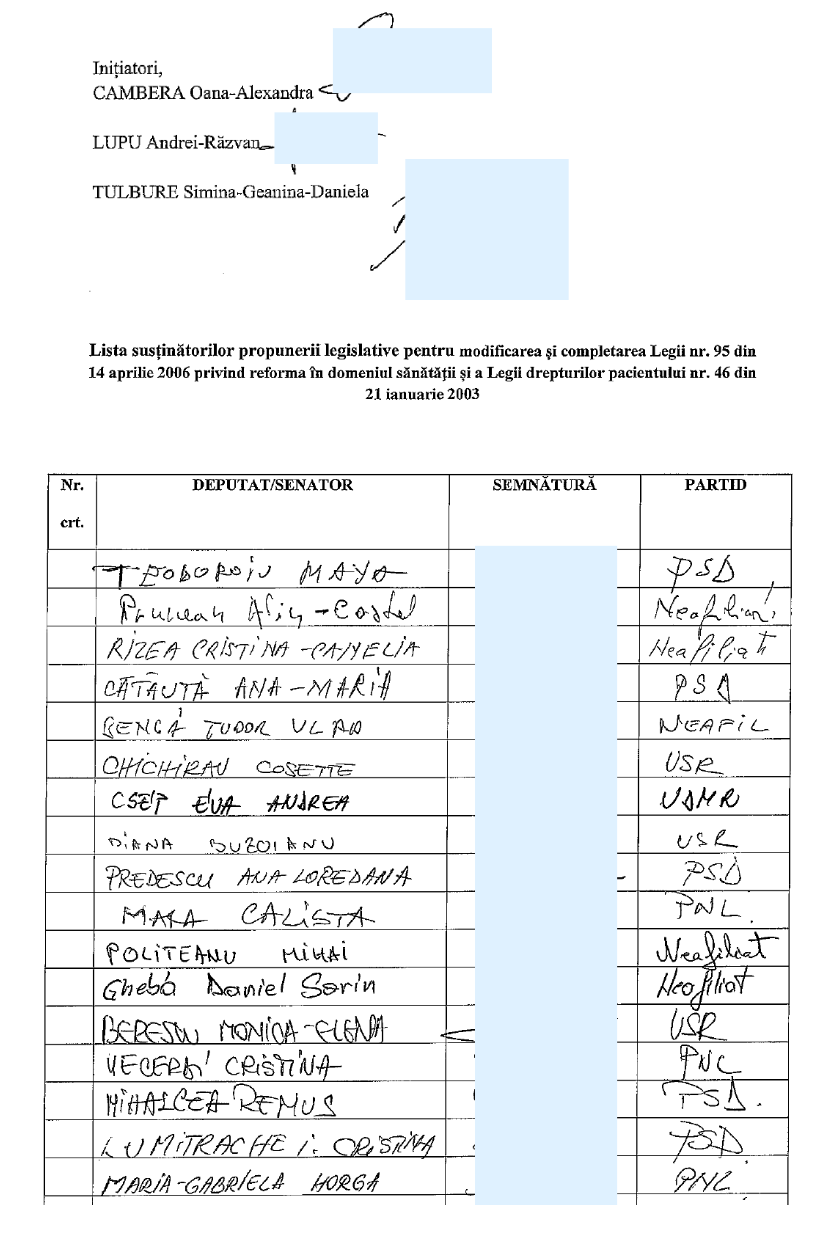 Inițiatori,
CAMBERA Oana-Alexandra
LUPU Andrei-Răzvan
TULBURE Simina-Geanina-Daniela
Lista susținătorilor propunerii legislative pentru modificarea și completarea Legii nr. 95 din
14 aprilie 2006 privind reforma în domeniul sănătății și a Legii drepturilor pacientului nr. 46 din
21 ianuarie 2003
Nr. crt. DEPUTAT/SENATOR SEMNĂTURĂ PARTID
TEODOROIU MAYA PSD
Alin-Costel Neafiliat
RIZEA CRISTINA-CAMELIA Neafiliat
CĂTĂUȚĂ ANA-MARIA PSD
BENGA TUDOR VLAD NEAFIL
CHICHIRĂU COSETTE USR
CSEP EVA ANDREA UDMR
DIANA BUZOIANU USR
PREDESCU ANA LOREDANA PSD
MARA CALISTA PNL
POLITEANU MIHAI Neafiliat
Gheba Daniel Sorin Neafiliat
BERESCU MONICA-ELENA USR
VECERDI CRISTINA PNL
MIHALCEA REMUS PSD.
DUMITRACHE I. CRISTINA PSD
MARIA-GABRIELA HORGA PNL